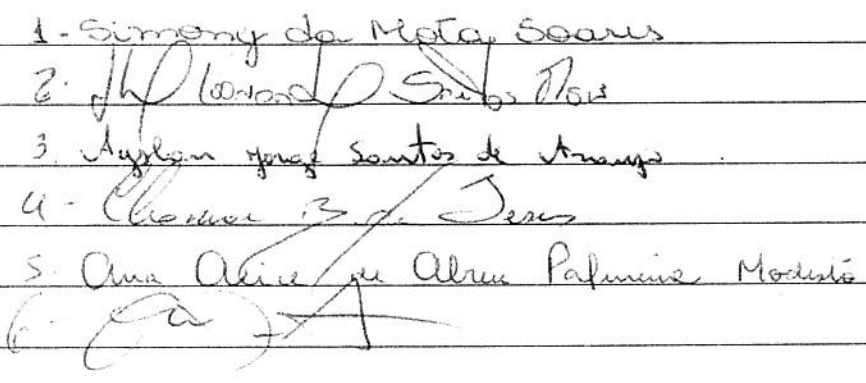 1 - Simony da Mota Soares
2. Santos
3. Ayslan Jorge Santos de Araujo.
4 - B. de Jesus
5. Ana Alice de Abreu Palmeira Modesto
6.